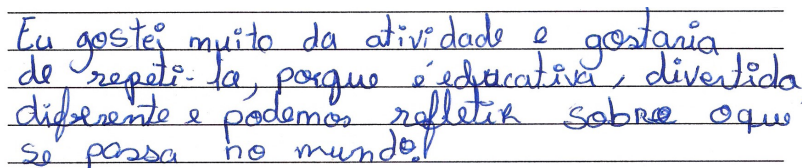 Eu gostei muito da atividade e gostaria
de repeti-la, porque é educativa, divertida,
diferente e podemos refletir sobre oque
se passa no mundo!